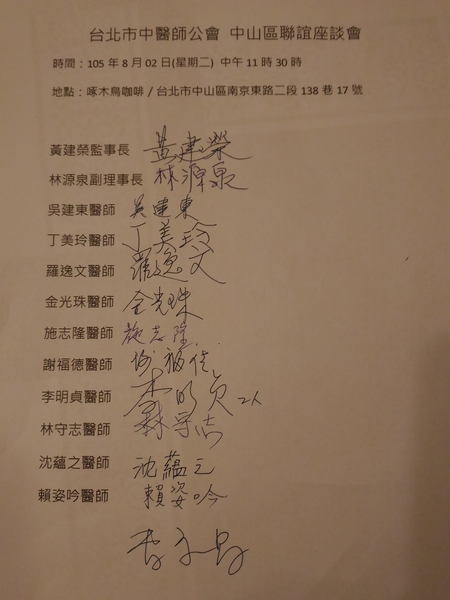 台北市中醫師公會 中山區聯誼座談會
時間：105 年 8 月 02 日(星期二) 中午 11 時 30 時
地點：啄木鳥咖啡 / 台北市中山區南京東路二段 138 巷 17 號
黃建榮監事長 黃建榮
林源泉副理事長 林源泉
吳建東醫師 吳建東
丁美玲醫師 丁美玲
羅逸文醫師 羅逸文
金光珠醫師 金光珠
施志隆醫師 施志隆
謝福德醫師
李明貞醫師 李明貞 2人
林守志醫師 林守志
沈蘊之醫師 沈蘊之
賴姿吟醫師 賴姿吟